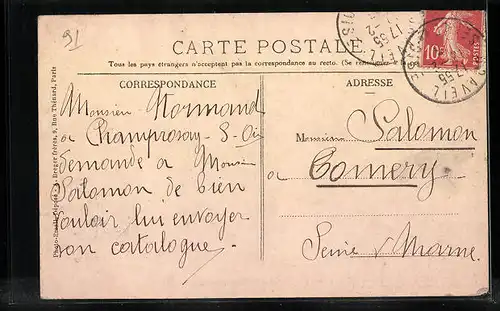 91
CARTE POSTALE
Tous les pays étrangers n'acceptent pas la correspondance au recto. (Se renseigner à la
CORRESPONDANCE
ADRESSE
Monsieur Normand
a Champrosay-S-Oi
demande a Monsieur
Salomon de bien
vouloir lui envoyer
son catalogue.
Monsieur Salomon
a Tomery
Seine & Marne
10
POSTES
17 55
Breger frères, 9, Rue Thénard, Paris